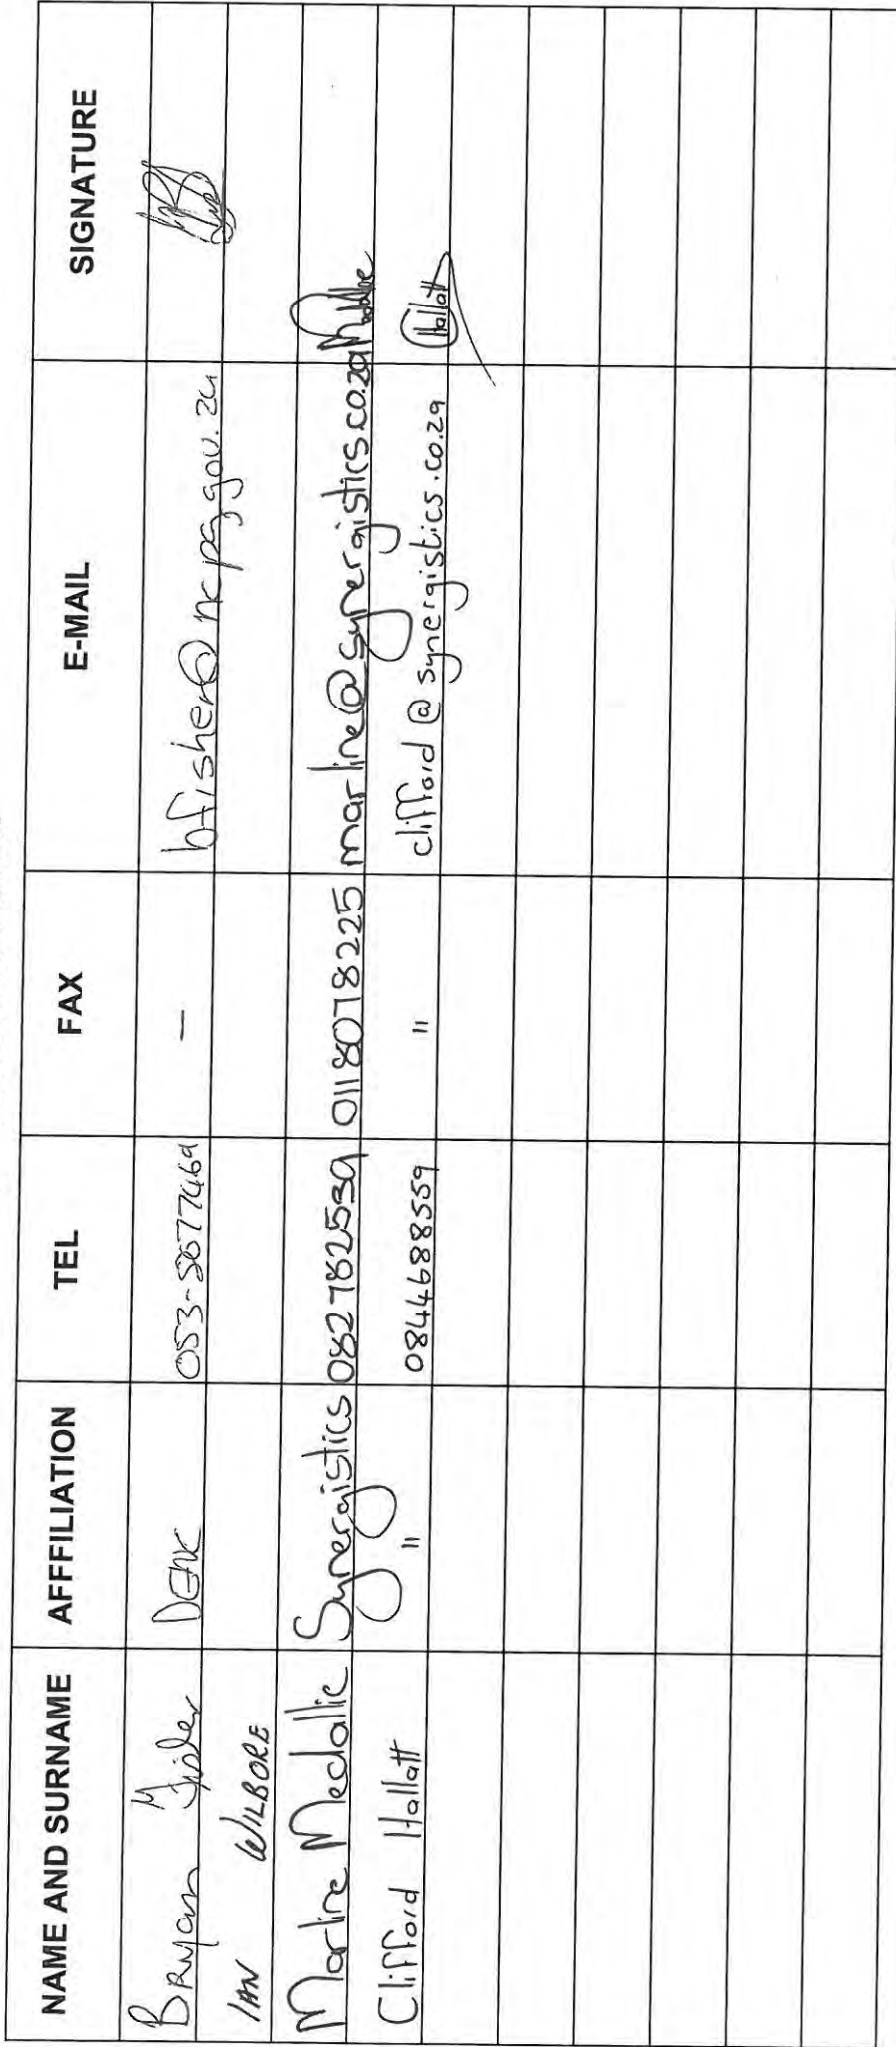 NAME AND SURNAME AFFFILIATION TEL FAX E-MAIL SIGNATURE
BRyan Fisher DENC 053-8077469 – bfisher@ncpg.gov.za
IAN WILBORE
Marline Medallie Synergistics 082782539 0118078225 marline@synergistics.co.za Medallie
Clifford Hallatt " 0844688559 " clifford@synergistics.co.za CHallatt